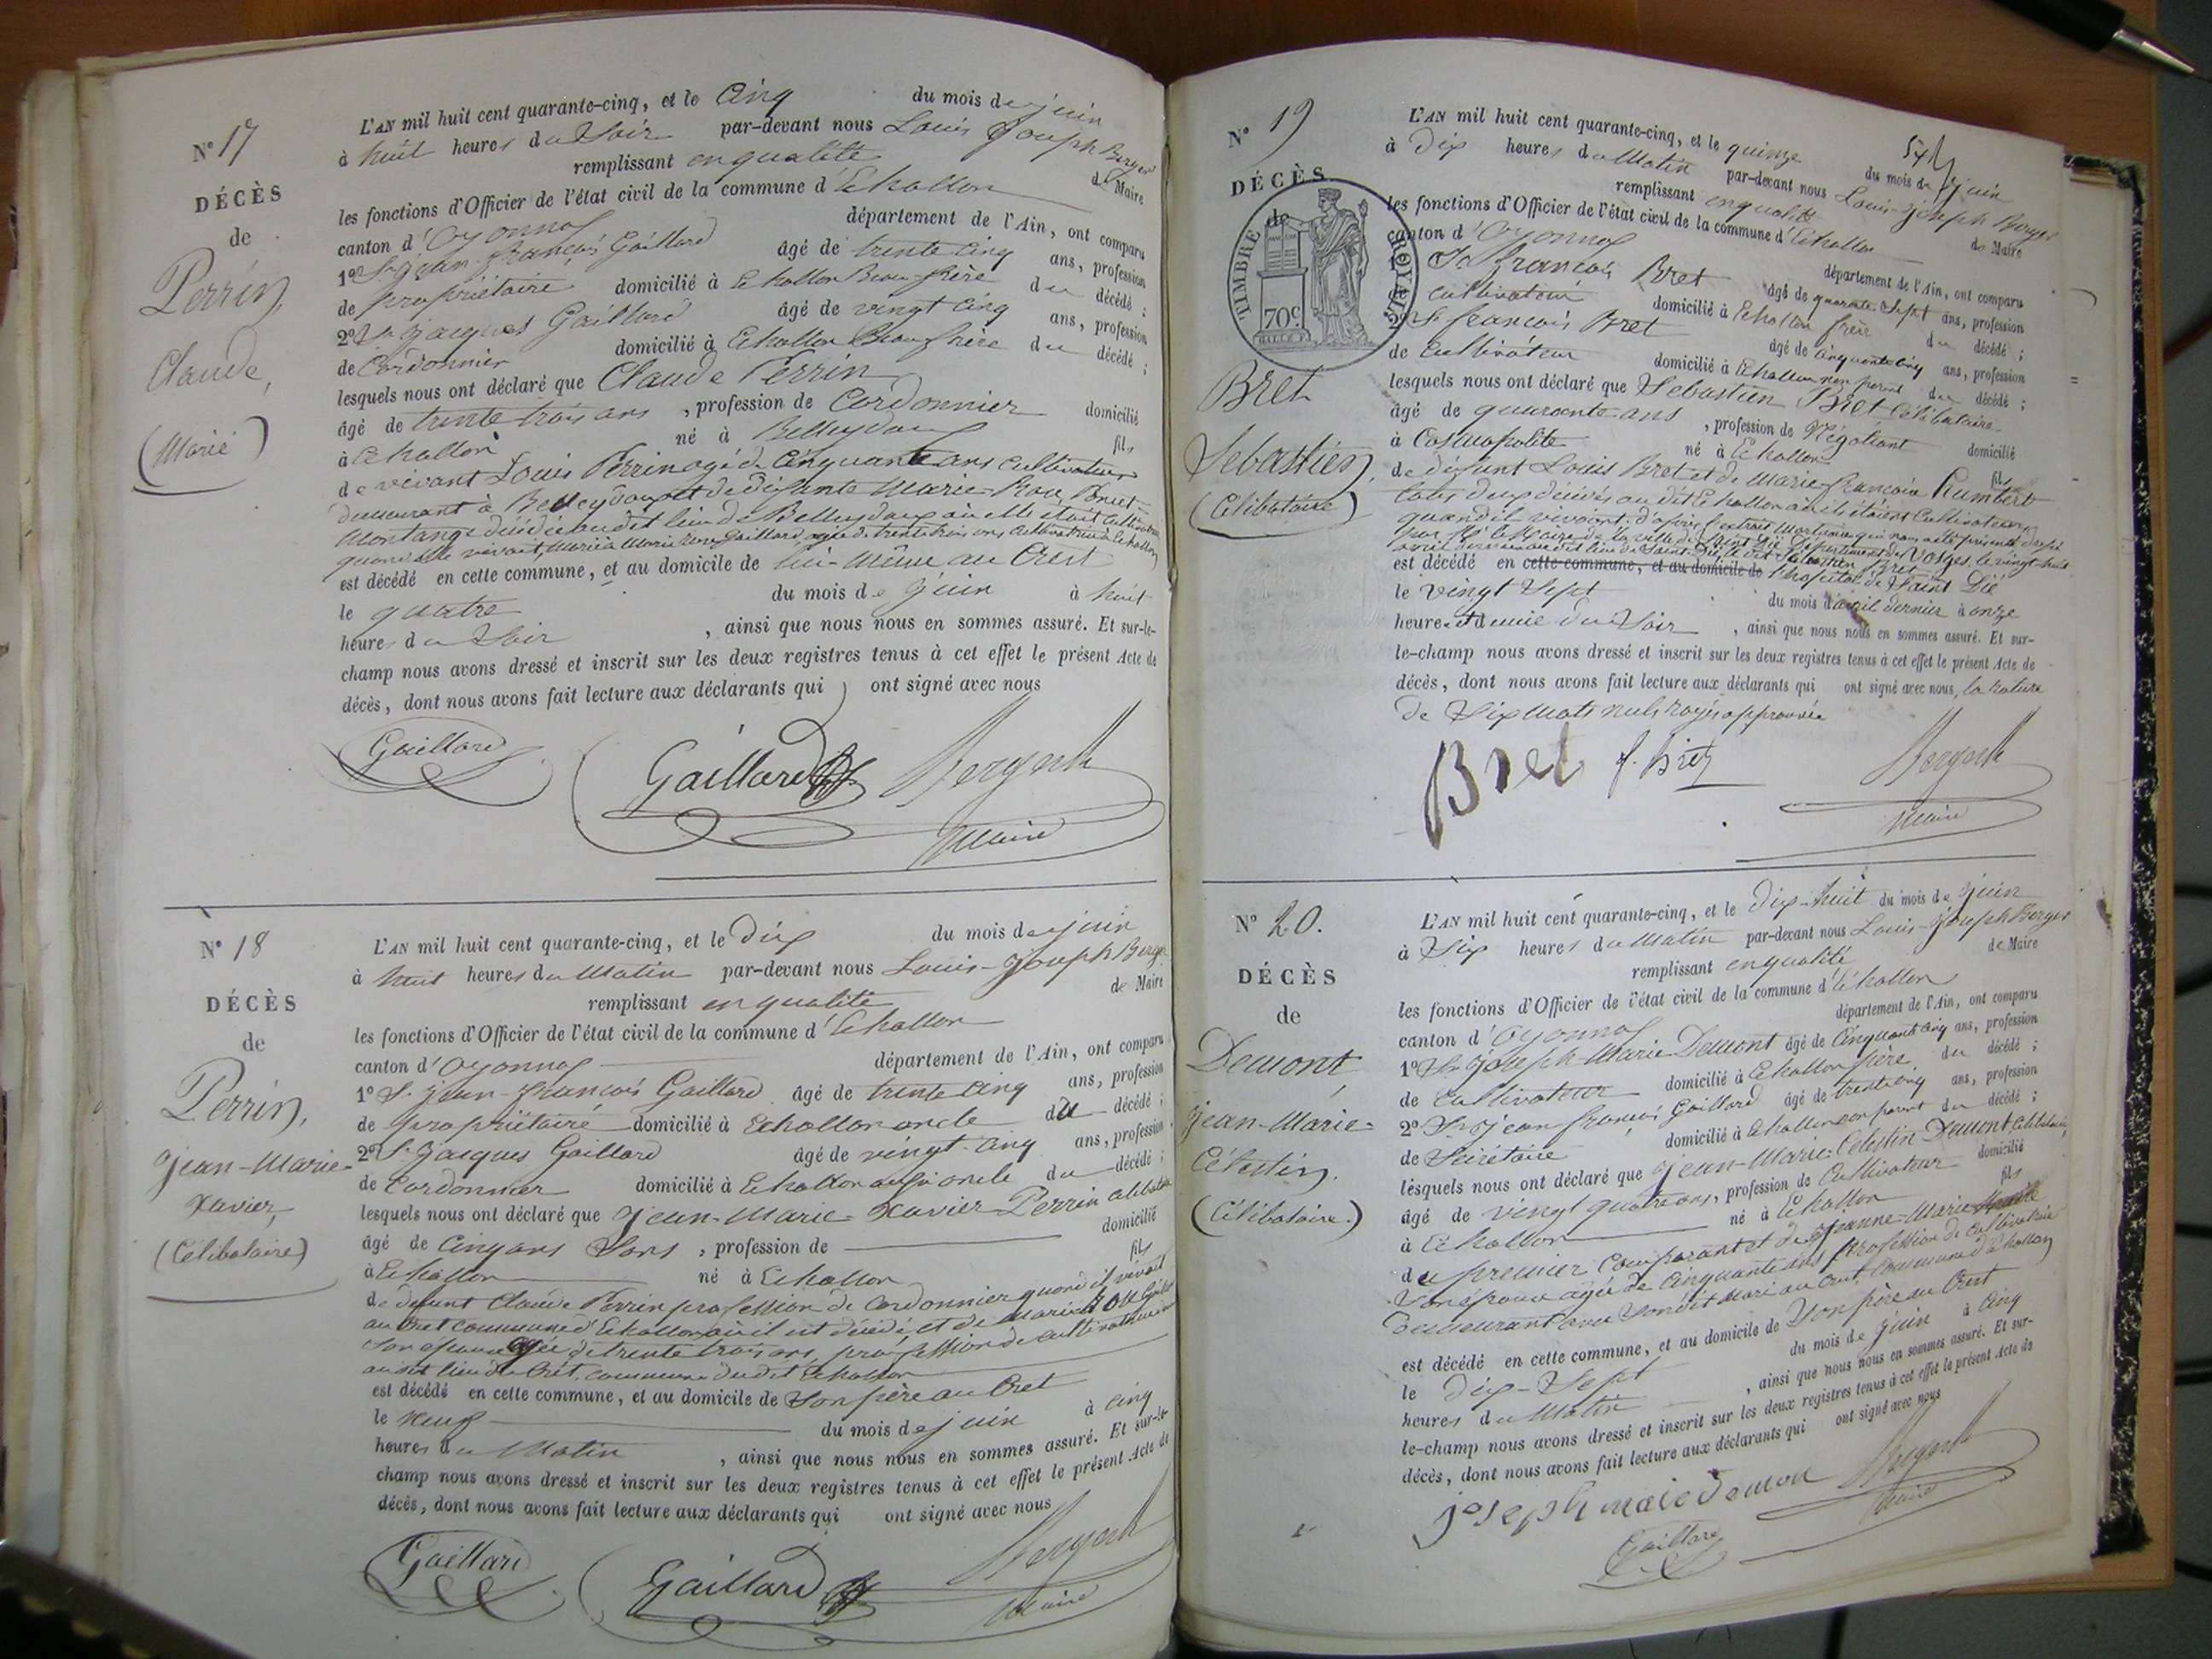 N° 17
DÉCÈS
de
Perrin,
Claude,
(Marié)
L'AN mil huit cent quarante-cinq, et le cinq du mois de juin
à huit heures du Soir par-devant nous Louis Joseph Berger
remplissant en qualité de Maire
les fonctions d'Officier de l'état civil de la commune d'Echallon
canton d'Oyonnax département de l'Ain, ont comparu
1° Sr jean-françois Gaillard âgé de trente cinq ans, profession
de propriétaire domicilié à Echallon Beau-frère du décédé ;
2° Sr jacques Gaillard âgé de vingt cinq ans, profession
de Cordonnier domicilié à Echallon Beau frère du décédé ;
lesquels nous ont déclaré que Claude Perrin
âgé de trente trois ans , profession de Cordonnier domicilié
à Echallon né à Belleydoux fils
de vivant Louis Perrin agé de Cinquante ans cultivateur
demeurant à Belleydoux et de défunte Marie-Rose Poncet-
Montange décédée audit lieu de Belleydoux où elle était Cultivatrice
quand elle vivait, Marié à Marie Rose Gaillard, agée de trente trois ans Cultivatrice à Echallon
est décédé en cette commune, et au domicile de lui-Même au Cret
le quatre du mois de juin à huit
heures du Soir , ainsi que nous nous en sommes assuré. Et sur-le-
champ nous avons dressé et inscrit sur les deux registres tenus à cet effet le présent Acte de
décès, dont nous avons fait lecture aux déclarants qui ont signé avec nous
Gaillard Gaillard Berger
Maire
N° 18
DÉCÈS
de
Perrin,
jean-Marie-
Xavier,
(Célibataire)
L'AN mil huit cent quarante-cinq, et le Dix du mois de juin
à huit heures du Matin par-devant nous Louis-Joseph Berger
remplissant en qualité de Maire
les fonctions d'Officier de l'état civil de la commune d'Echallon
canton d'Oyonnax département de l'Ain, ont comparu
1° Sr jean-françois Gaillard âgé de trente cinq ans, profession
de propriétaire domicilié à Echallon oncle du décédé ;
2° Sr jacques Gaillard âgé de vingt-cinq ans, profession
de Cordonnier domicilié à Echallon aussi oncle du décédé ;
lesquels nous ont déclaré que jean-Marie-Xavier-Perrin célibataire
âgé de Cinq ans Sans , profession de domicilié
à Echallon né à Echallon fils
de défunt Claude Perrin profession de cordonnier quand il vivait
au Cret commune d'Echallon où il est décédé, et de Marie Rose Gaillard
son épouse agée de trente trois ans, profession de cultivatrice
audit lieu du Crêt, commune dudit Echallon
est décédé en cette commune, et au domicile de Son père au Cret
le Neuf du mois de juin à cinq
heures du Matin , ainsi que nous nous en sommes assuré. Et sur-le-
champ nous avons dressé et inscrit sur les deux registres tenus à cet effet le présent Acte de
décès, dont nous avons fait lecture aux déclarants qui ont signé avec nous
Gaillard Gaillard Berger
Maire
N° 19
DÉCÈS
de
TIMBRE ROYAL
70c.
Bret
Sebastien,
(Célibataire)
L'AN mil huit cent quarante-cinq, et le quinze du mois de juin
à Dix heures du Matin par-devant nous Louis-Joseph Berger
remplissant en qualité de Maire
les fonctions d'Officier de l'état civil de la commune d'Echallon
canton d'Oyonnax département de l'Ain, ont comparu
François Bret âgé de quarante Sept ans, profession
cultivateur domicilié à Echallon frère du décédé ;
2° Sr françois Bret âgé de cinquante cinq ans, profession
de cultivateur domicilié à Echallon non parent du décédé ;
lesquels nous ont déclaré que Sebastien Bret célibataire
âgé de quarante ans , profession de Négotiant domicilié
à Cosmopolite né à Echallon fils
de défunt Louis Bret et de Marie françoise humbert
tous deux décédés au dit Echallon où ils étaient cultivateurs
quand ils vivaient. d'après l'extrait Mortuaire qui nous a été présenté dressé
par Mr le Maire de la ville de Saint Dié, Département des Vosges, le vingt-huit
est décédé en cette commune, et au domicile de l'hopital de Saint Dié
le vingt Sept du mois d'avril dernier à onze
heures et demie du Soir , ainsi que nous nous en sommes assuré. Et sur-
le-champ nous avons dressé et inscrit sur les deux registres tenus à cet effet le présent Acte de
décès, dont nous avons fait lecture aux déclarants qui ont signé avec nous, la rature
de Six Mots nuls rayés approuvée
Bret f. Bret Berger
Maire
N° 20.
DÉCÈS
de
Demont
jean-Marie-
Célestin.
(Célibataire.)
L'AN mil huit cent quarante-cinq, et le Dix-huit du mois de juin
à Six heures du Matin par-devant nous Louis-Joseph Berger
remplissant en qualité de Maire
les fonctions d'Officier de l'état civil de la commune d'Echallon
canton d'Oyonnax département de l'Ain, ont comparu
1° Sr joseph-Marie Demont âgé de Cinquante cinq ans, profession
de Cultivateur domicilié à Echallon père du décédé ;
2° Sr jean françois Gaillard âgé de trente cinq ans, profession
de Secrétaire domicilié à Echallon non parent du décédé ;
lesquels nous ont déclaré que jean-Marie-Célestin Demont célibataire
âgé de vingt quatre ans, profession de Cultivateur domicilié
à Echallon né à Echallon fils
du premier Comparant et de jeanne-Marie
Son épouse agée de Cinquante ans profession de cultivatrice
demeurant avec Sondit Mari au Cret, commune d'Echallon
est décédé en cette commune, et au domicile de Son père au Cret
le Dix-Sept du mois de juin à cinq
heures du Matin , ainsi que nous nous en sommes assuré. Et sur-
le-champ nous avons dressé et inscrit sur les deux registres tenus à cet effet le présent Acte de
décès, dont nous avons fait lecture aux déclarants qui ont signé avec nous
joseph marie demon Berger
Maire
Gaillard